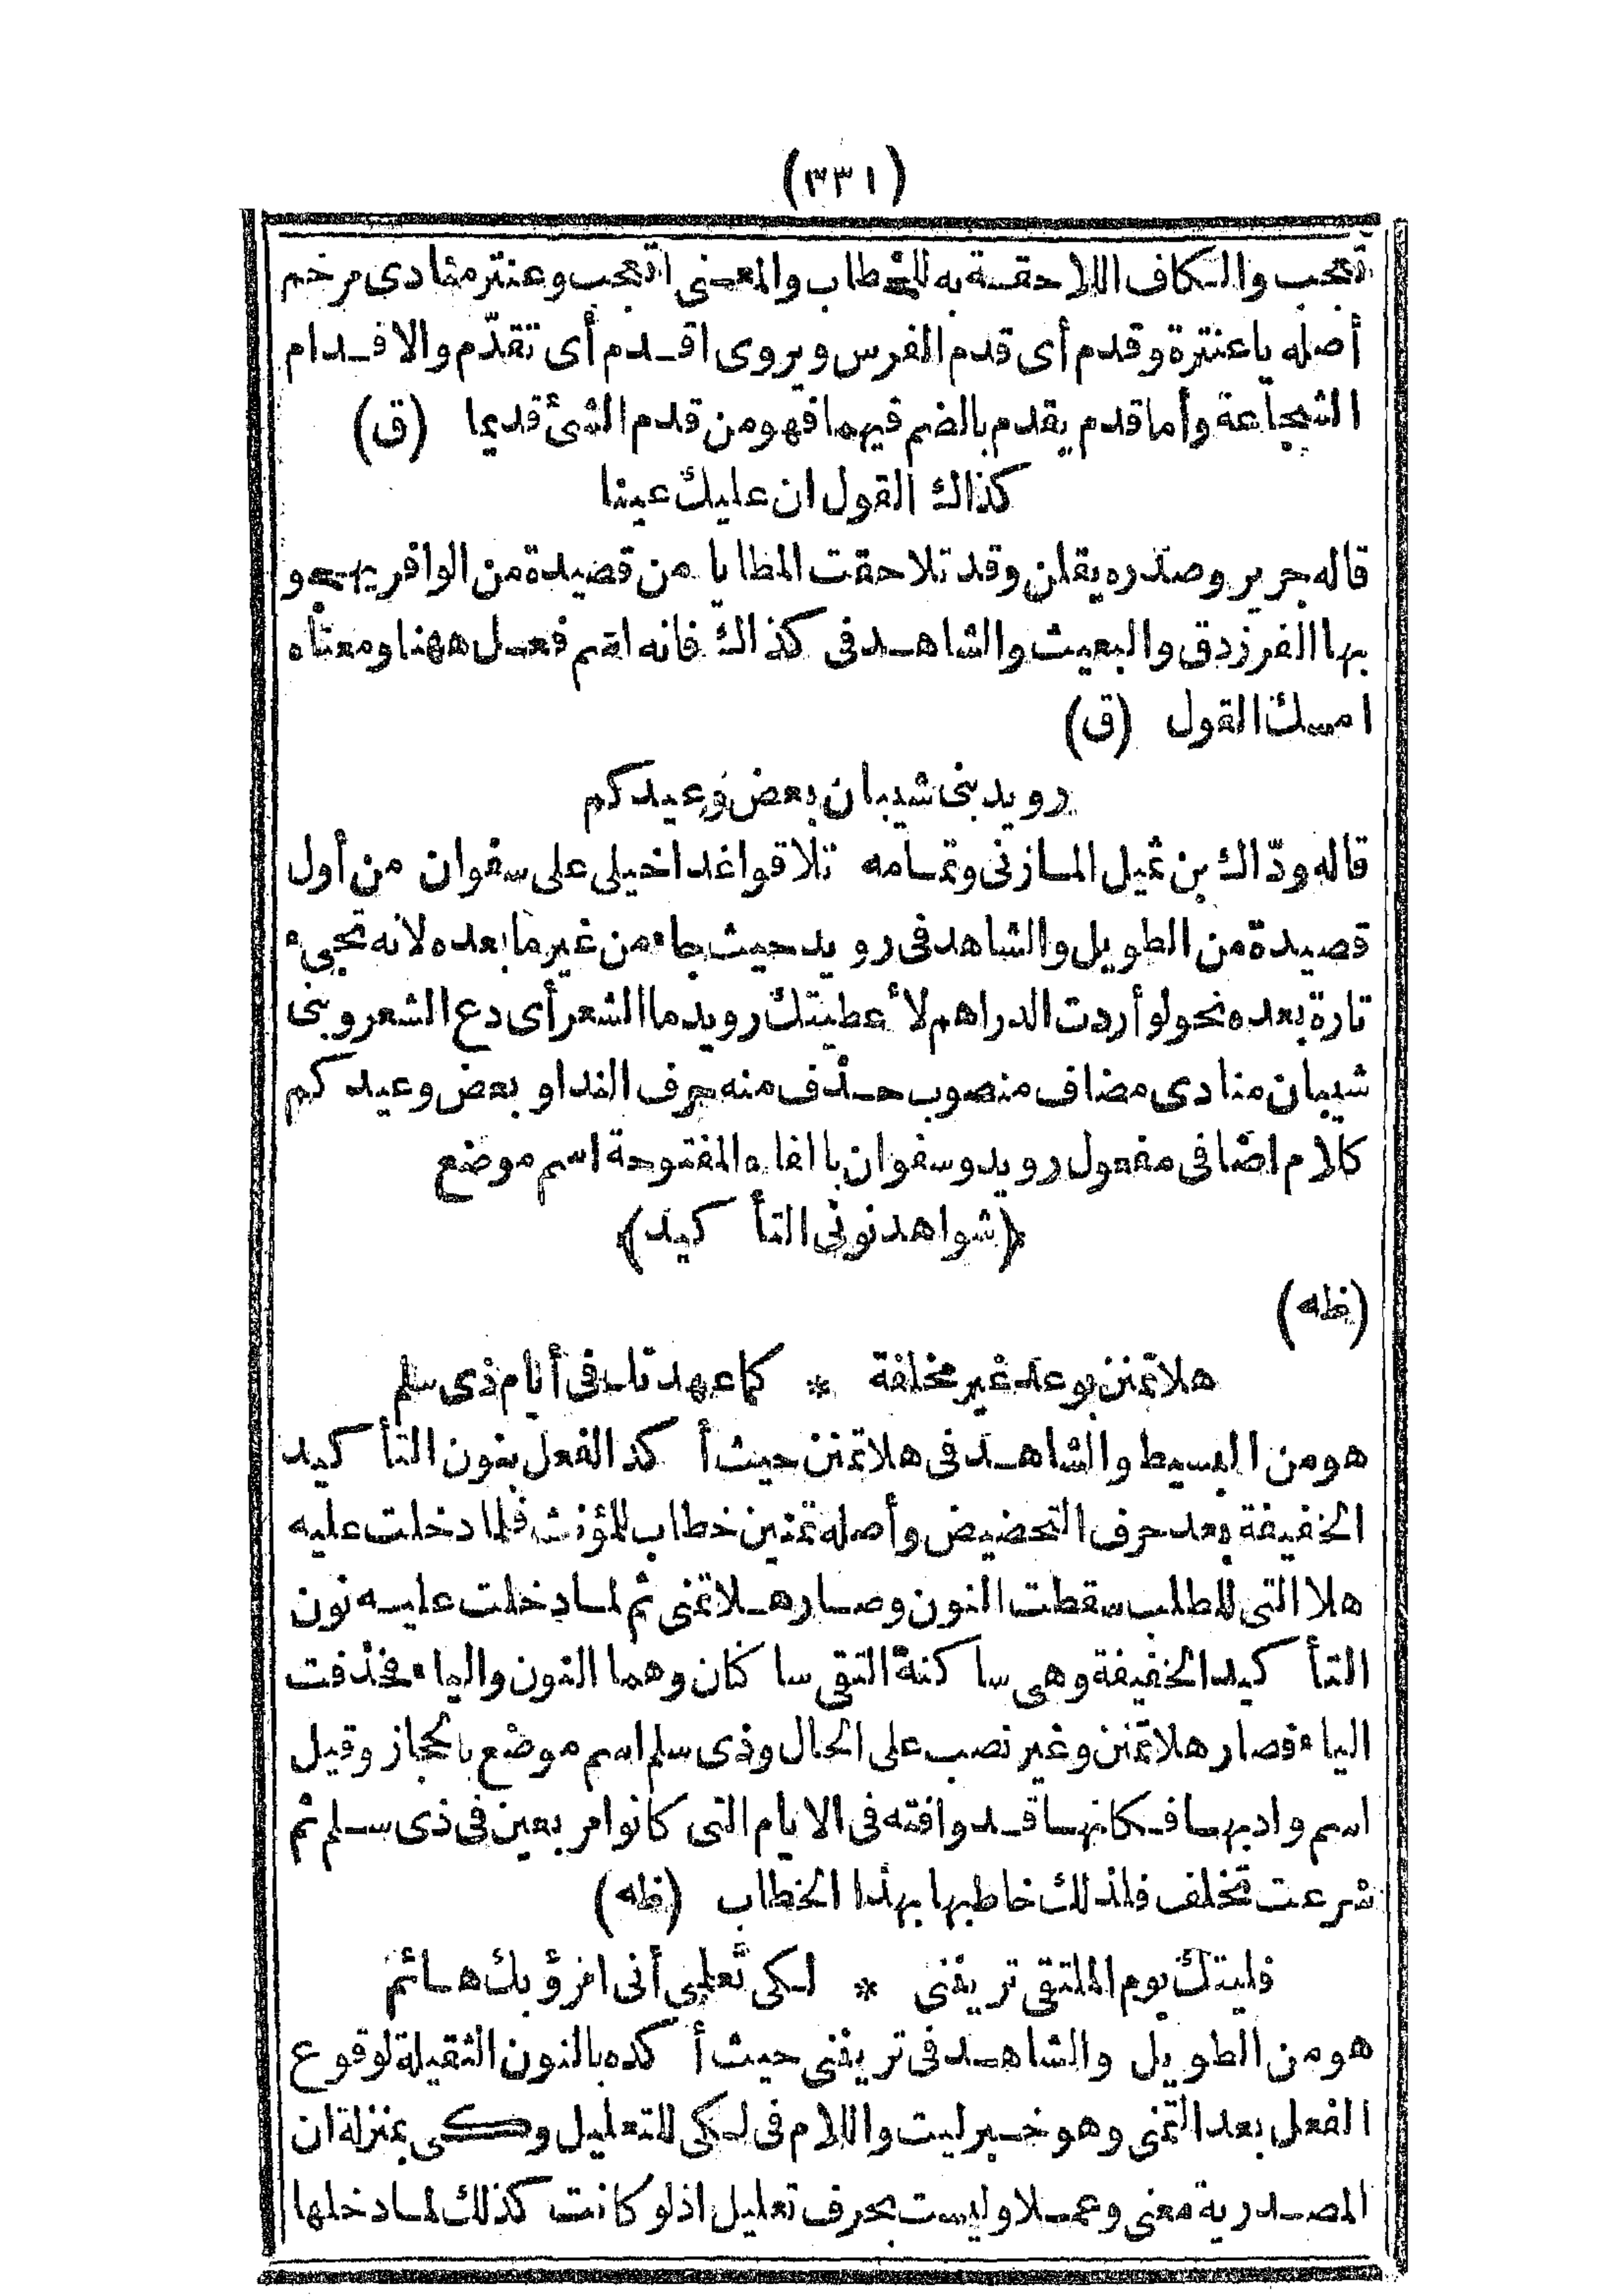 (٣٣١)
أتعجب والكاف اللاحقة به للخطاب والمعنى أتعجب وعنتر منادى مرخم
أصله ياعنترة وقدم أى قدم الفرس ويروى اقدم أى تقدّم والاقدام
الشجاعة وأما قدم يقدم بالضم فيهما فهو من قدم الشئ قديما (ق)
كذاك القول ان عليك عينا
قاله جرير وصدره يقلن وقد تلاحقت المطايا من قصيدة من الوافر يهجو
بها الفرزدق والبعيث والشاهد فى كذاك فانه اسم فعل ههنا ومعناه
امسك القول (ق)
رويد بنى شيبان بعض وعيدكم
قاله ودّاك بن ثميل المازنى وتمامه تلاقوا غدا خيلى على سفوان من أول
قصيدة من الطويل والشاهد فى رويد حيث جاء من غير ما بعده لانه تجىء
تارة بعده نحو لو أردت الدراهم لأعطيتك رويد ما الشعر أى دع الشعر وبنى
شيبان منادى مضاف منصوب حذف منه حرف الندا وبعض وعيدكم
كلام اضافى مفعول رويد وسفوان بالفاء المفتوحة اسم موضع
﴿شواهد نونى التأكيد﴾
(ظه)
هلا تمنن بوعد غير مخلفة * كما عهدتك فى أيام ذى سلم
هو من البسيط والشاهد فى هلا تمنن حيث أكد الفعل بنون التأكيد
الخفيفة بعد حرف التحضيض وأصله تمنين خطاب للمؤنث فلما دخلت عليه
هلا التى للطلب سقطت النون وصار هلا تمنى ثم لما دخلت عليه نون
التأكيد الخفيفة وهى ساكنة التقى ساكنان وهما النون والياء فحذفت
الياء فصار هلا تمنن وغير نصب على الحال وذى سلم اسم موضع بالحجاز وقيل
اسم واد بها فكانها قد وافته فى الايام التى كانوا مربعين فى ذى سلم ثم
شرعت تخلف فلذلك خاطبها بهذا الخطاب (ظه)
فليتك يوم الملتقى ترينى * لكى تعلمى أنى امرؤ بك هائم
هو من الطويل والشاهد فى ترينى حيث أكده بالنون الثقيلة لوقوع
الفعل بعد التمنى وهو خبر ليت واللام فى لكى للتعليل وكى بمنزلة ان
المصدرية معنى وعملا وليست بحرف تعليل اذ لو كانت كذلك لما دخلها